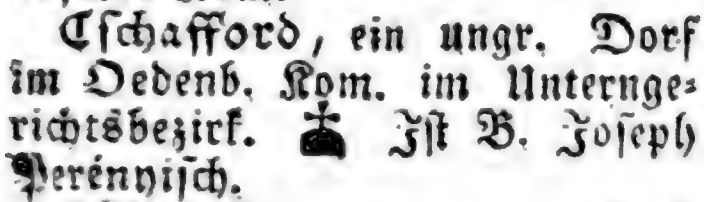 Cſchafford, ein ungr. Dorf
im Oedenb. Kom. im Unternge⸗
richtsbezirk. Iſt B. Joſeph
Perényiſch.